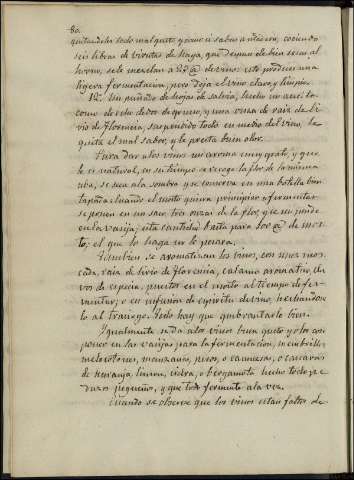 80.
quitandoles todo mal gusto y como si sabor a mas con, cociendo
seis libras de virutas de haya, que despues de bien secas al
horno, se le mezclan á @ de vino: esto produce una
ligera fermentacion, pero deja el vino claro, y limpio.
12. Un puñado de hojas de salvia, hecho un acecito
como de seis dedos de grueso, y una onza de raiz de li-
rio de florencia, suspendido todo en medio del vino, le
quita el mal sabor, y le presta buen olor.
Para dar a los vinos un aroma muy grato, y que
le es natural, en su tiempo se recoge la flor de la misma
uba, se seca a la sombra y se conserva en una botella bien
tapada: cuando el mosto quiera principiar a fermentar
se ponen en un saco tres onzas de la flor, que se pende
en la vasija; esta cantidad basta para 100 @ de mos-
to; el que lo haga no le pesara.
Tambien se aromatizan los vinos, con nuez mos-
cada, raiz de lirio de florencia, calamo aromatico, cla-
vos de especia, puestos en el mosto al tiempo de fer-
mentar; o en infusion de espiritu de vino, hechandose-
lo al trasiego. Todo hay que quebrantarlo bien.
Igualmente se da a los vinos buen gusto y olor con
poner en las vasijas para la fermentacion, membrillos,
melocotones, manzanas, peros, o camuesas, o cascaras
de naranja, limon, cidra, o bergamota hecho todo pe-
dazos pequeños, y que todo fermente a la vez.
Cuando se observe que los vinos estan faltos de